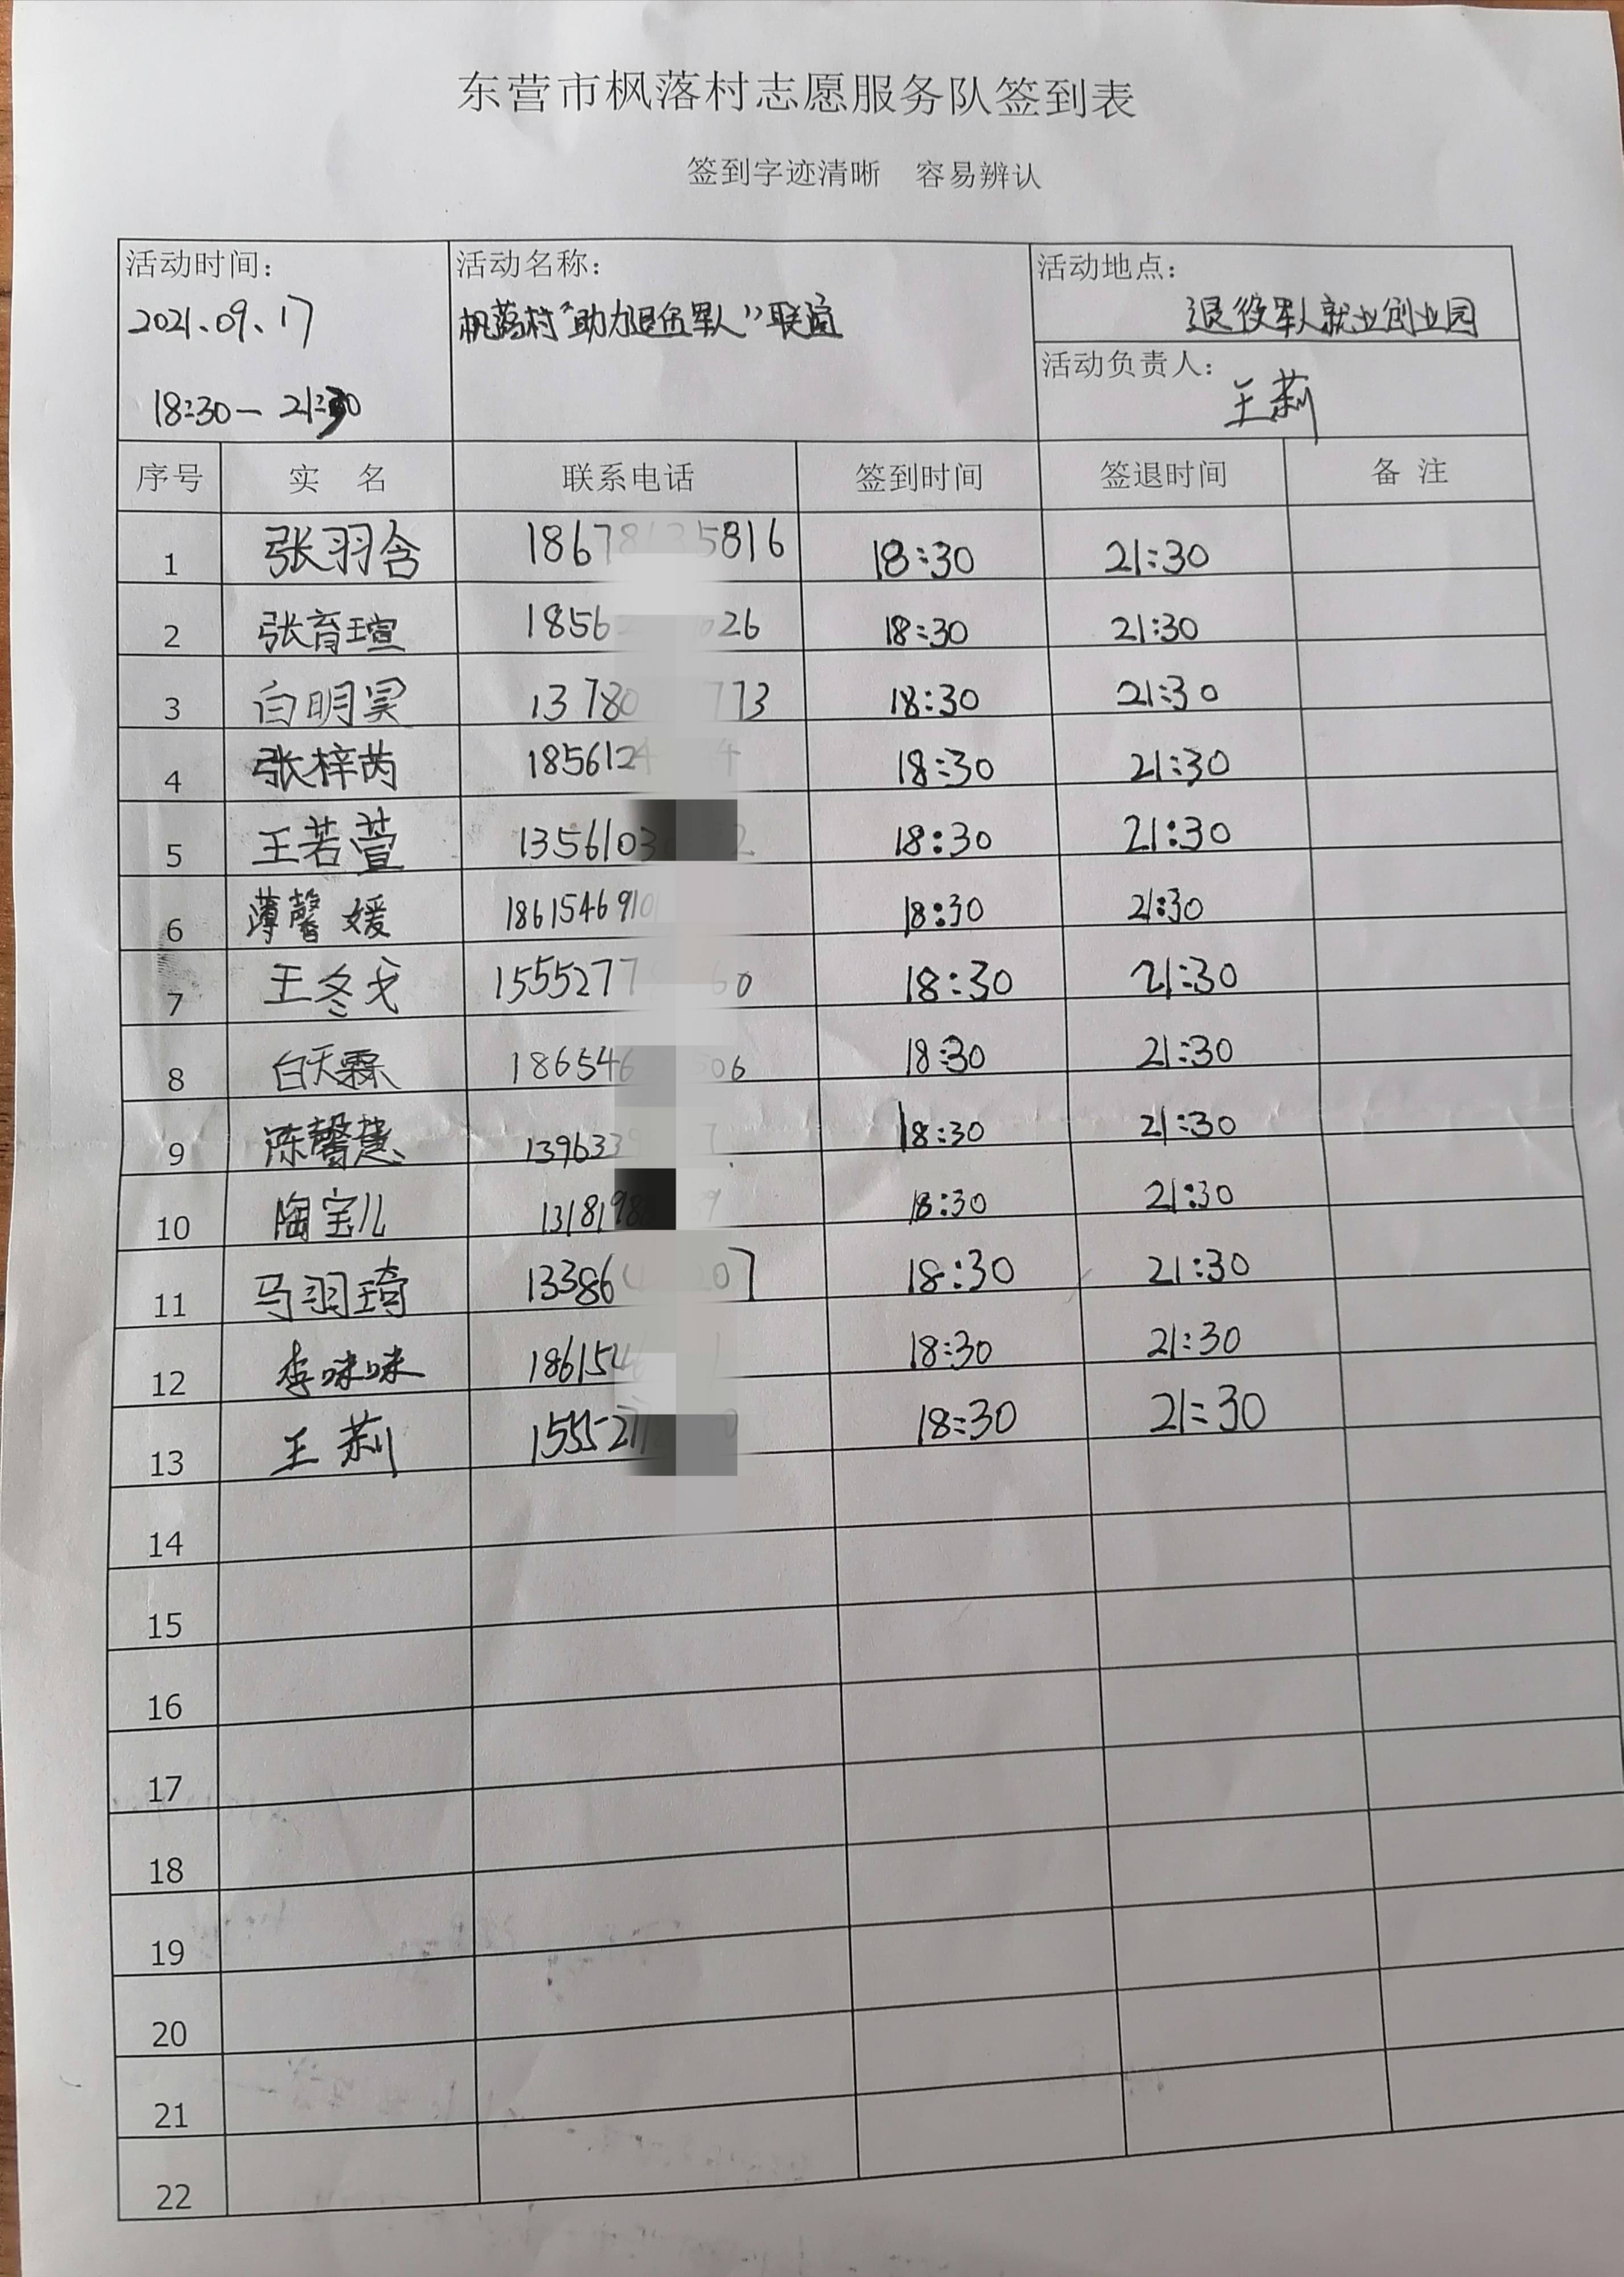 东营市枫落村志愿服务队签到表
签到字迹清晰 容易辨认
活动时间： 活动名称： 活动地点：
2021.09.17 枫落村“助力退伍军人”联谊 退役军人就业创业园
18:30— 21:30 活动负责人： 王莉
序号 实 名 联系电话 签到时间 签退时间 备 注
1 张羽含 1867 5816 18:30 21:30
2 张育瑄 1856 26 18:30 21:30
3 白明昊 13780 773 18:30 21:30
4 张梓芮 185612 4 18:30 21:30
5 王若萱 1356103 2 18:30 21:30
6 薄馨媛 186154691 18:30 21:30
7 王冬戈 1555277 60 18:30 21:30
8 白天霖 186546 06 18:30 21:30
9 陈馨慧 139633 7 18:30 21:30
10 陶宝儿 1318198 9 18:30 21:30
11 马羽琦 133864 207 18:30 21:30
12 李咪咪 186154 18:30 21:30
13 王莉 155527 0 18:30 21:30
14
15
16
17
18
19
20
21
22